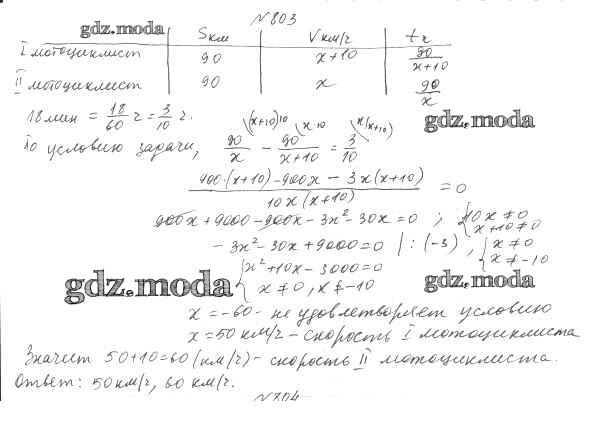 N 803
gdz.moda
Sкм Vкм/ч tч
I мотоциклист 90 x+10 90/(x+10)
II мотоциклист 90 x 90/x
18 мин = 18/60 ч = 3/10 ч.
gdz.moda
По условию задачи, 90/x \(x+10)10 - 90/(x+10) \x·10 = 3/10 \x(x+10)
(900·(x+10) - 900x - 3x(x+10))/(10x(x+10)) = 0
900x + 9000 - 900x - 3x² - 30x = 0 ; { 10x ≠ 0 x+10 ≠ 0
- 3x² - 30x + 9000 = 0 | : (-3) , { x ≠ 0 x ≠ -10
{ x² + 10x - 3000 = 0 x ≠ 0, x ≠ -10
gdz.moda gdz.moda
x = -60 - не удовлетворяет условию
x = 50 км/ч - скорость I мотоциклиста
Значит 50+10=60 (км/ч) - скорость II мотоциклиста.
Ответ: 50 км/ч, 60 км/ч.
N 804